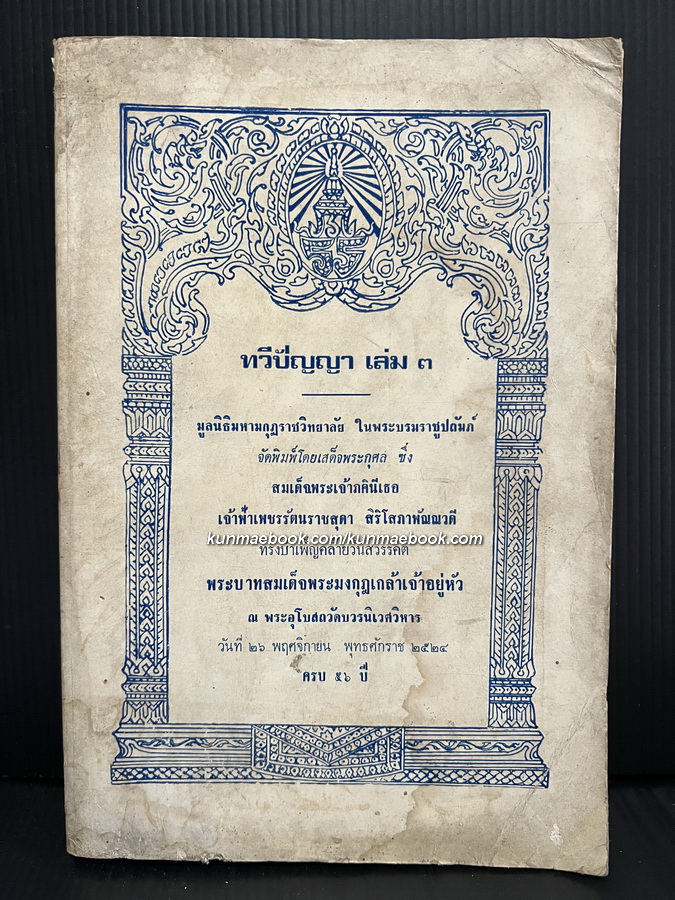 ทวีปัญญา เล่ม ๓
มูลนิธิมหามกุฏราชวิทยาลัย ในพระบรมราชูปถัมภ์
จัดพิมพ์โดยเสด็จพระกุศล ซึ่ง
สมเด็จพระเจ้าภคินีเธอ
เจ้าฟ้าเพชรรัตนราชสุดา สิริโสภาพัณณวดี
kunmaebook.com/kunmaebook.com
ทรงบำเพ็ญคล้ายวันสวรรคต
พระบาทสมเด็จพระมงกุฎเกล้าเจ้าอยู่หัว
ณ พระอุโบสถวัดบวรนิเวศวิหาร
วันที่ ๒๖ พฤศจิกายน พุทธศักราช ๒๕๒๔
ครบ ๕๖ ปี